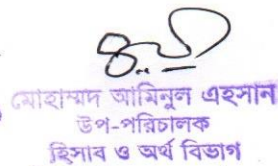 মোহাম্মদ আমিনুল এহসান
উপ-পরিচালক
হিসাব ও অর্থ বিভাগ